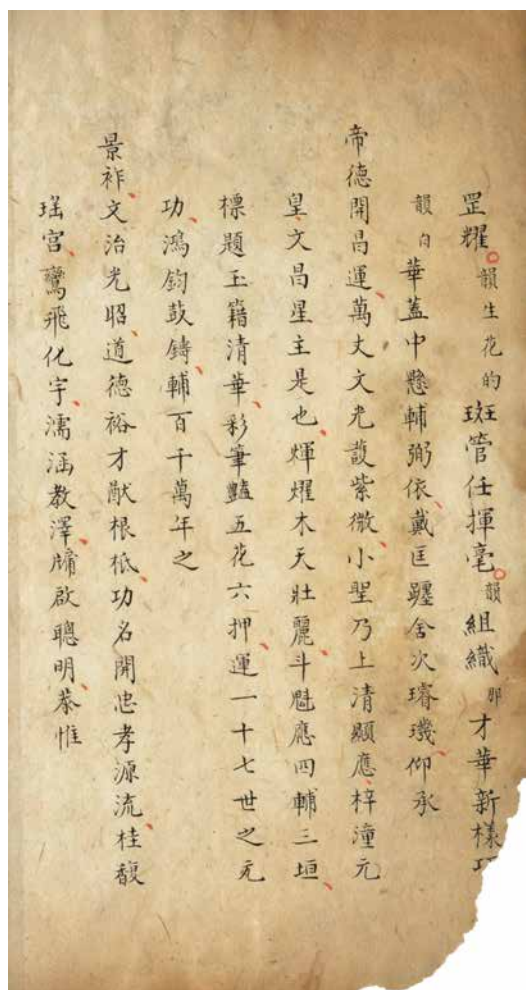 罡耀韻生花的斑管任揮毫韻組織那才華新樣
韻白華蓋中懸輔弼依戴匡躔舍次璿璣仰承
帝德開昌運萬丈文光護紫微小聖乃上清顯應梓潼元
皇文昌星主是也輝燿木天壯麗斗魁應四輔三垣
標題玉籍清華彩筆豔五花六押運一十七世之元
功鴻鈞鼓鑄輔百千萬年之
景祚文治光昭道德裕才猷根柢功名開忠孝源流桂馥
瑤宮鸞飛化宇濡涵教澤牖啟聰明恭惟